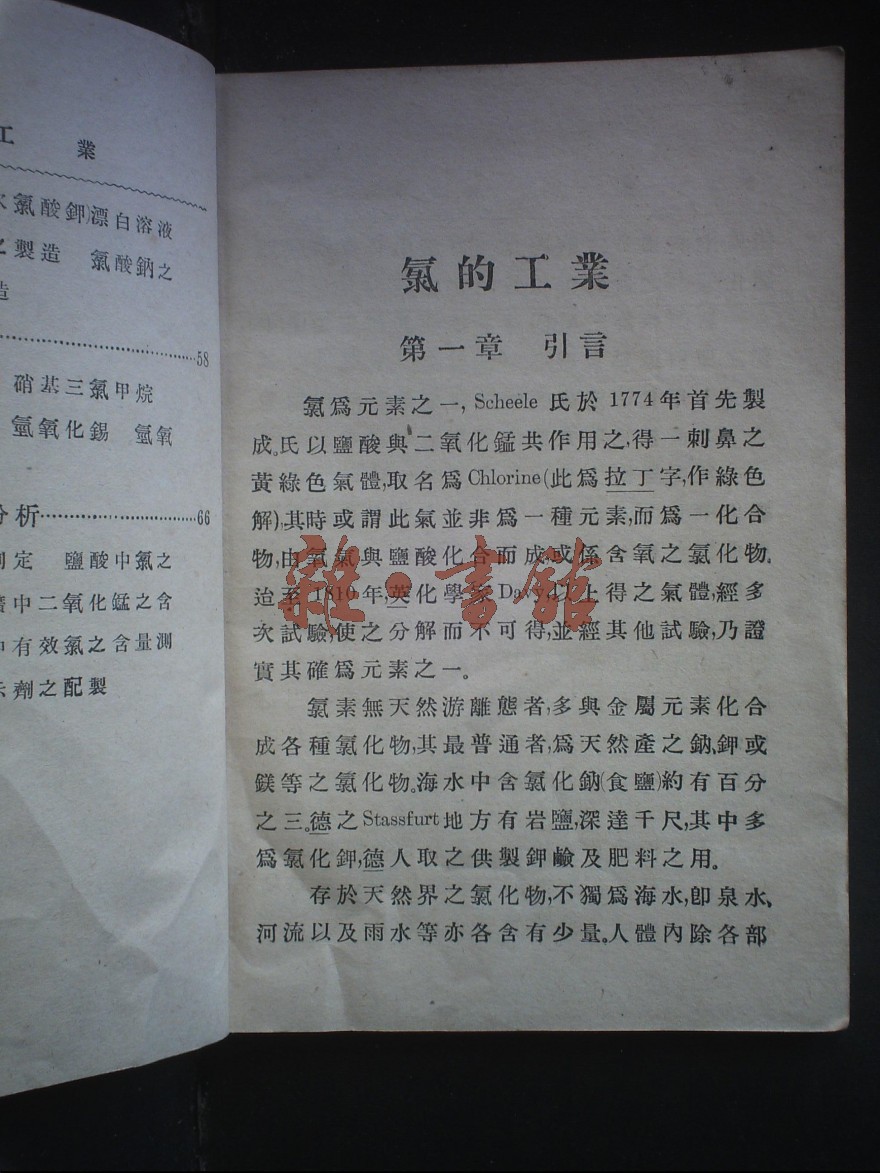 工 業
氯酸鉀)漂白溶液
之製造 氯酸鈉之
造
58
硝基三氯甲烷
氫氧化錫 氫氧
分析 66
測定 鹽酸中氯之
中二氧化錳之含
中有效氯之含量測
示劑之配製
氯的工業
第一章 引言
氯爲元素之一, Scheele 氏於 1774 年首先製
成。氏以鹽酸與二氧化錳共作用之,得一刺鼻之
黃綠色氣體,取名爲 Chlorine (此爲拉丁字,作綠色
解),其時或謂此氣並非爲一種元素,而爲一化合
物,由氧氣與鹽酸化合而成,或係含氧之氯化物。
迨至 1810 年,英化學家 Davy 以上得之氣體,經多
次試驗,使之分解而不可得,並經其他試驗,乃證
實其確爲元素之一。
氯素無天然游離態者,多與金屬元素化合
成各種氯化物,其最普通者,爲天然產之鈉、鉀或
鎂等之氯化物。海水中含氯化鈉(食鹽)約有百分
之三。德之 Stassfurt 地方有岩鹽,深達千尺,其中多
爲氯化鉀,德人取之供製鉀鹼及肥料之用。
存於天然界之氯化物,不獨爲海水,卽泉水、
河流以及雨水等亦各含有少量。人體內除各部
雜·書館